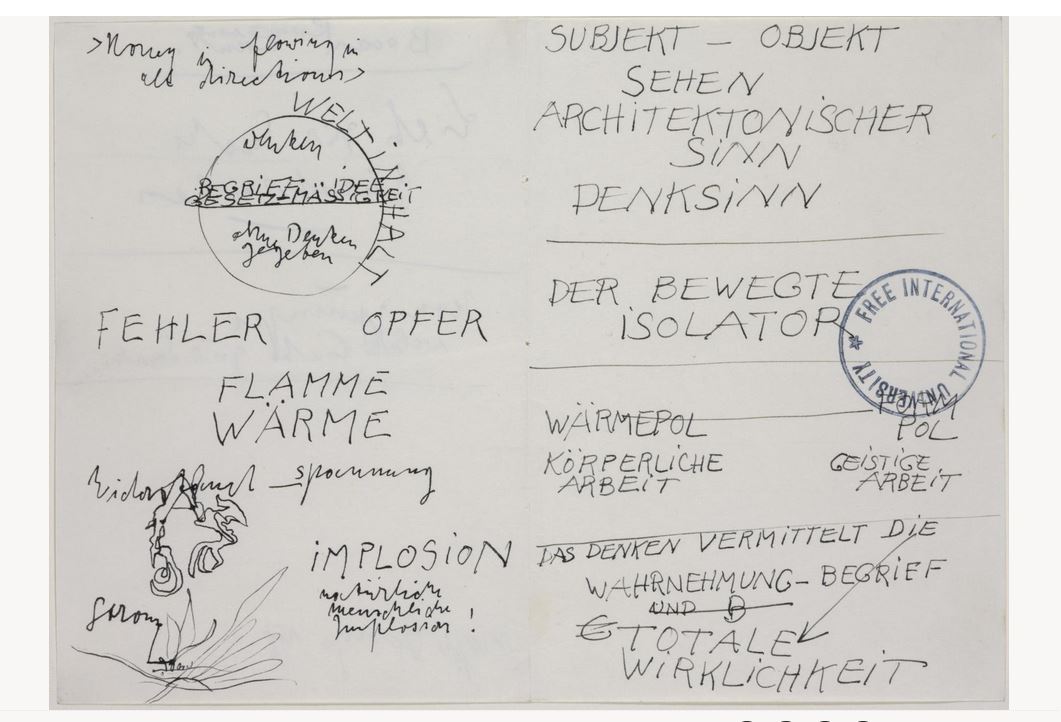 >Honey is flowing in
all directions>
WELTINHALT
denken
BEGRIFF IDEE
GESETZ-MÄSSIGKEIT
ohne Denken
gegeben
FEHLER OPFER
FLAMME
WÄRME
spannung
iMPLOSiON
natürliche
menschliche
Implosion !
SUBJEKT – OBJEKT
SEHEN
ARCHiTEKTONiSCHER
SiNN
DENKSiNN
DER BEWEGTE
iSOLATOR
FREE INTERNATIONAL UNIVERSITY
WÄRMEPOL FORM
POL
KÖRPERLiCHE GEiSTiGE
ARBEiT ARBEiT
DAS DENKEN VERMiTTELT DiE
WAHRNEHMUNG – BEGRiEF
UND B
TOTALE
WiRKLiCHKEiT